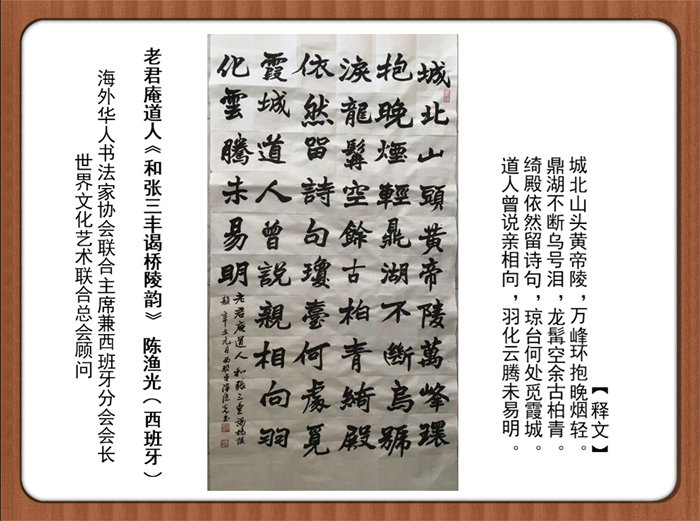 【释文】
城北山头黄帝陵，万峰环抱晚烟轻。
鼎湖不断乌号泪，龙髯空余古柏青。
绮殿依然留诗句，琼台何处觅霞城。
道人曾说亲相向，羽化云腾未易明。
城北山頭黄帝陵萬峰環
抱晚煙輕鼎湖不斷烏號
淚龍髯空餘古柏青綺殿
依然留詩句瓊臺何處覓
霞城道人曾説親相向羽
化雲騰未易明
老君庵道人和張三豐謁橋陵
韻 辛丑元月西班牙陳漁光書
老君庵道人《和张三丰谒桥陵韵》 陈渔光（西班牙）
海外华人书法家协会联合主席兼西班牙分会会长
世界文化艺术联合总会顾问